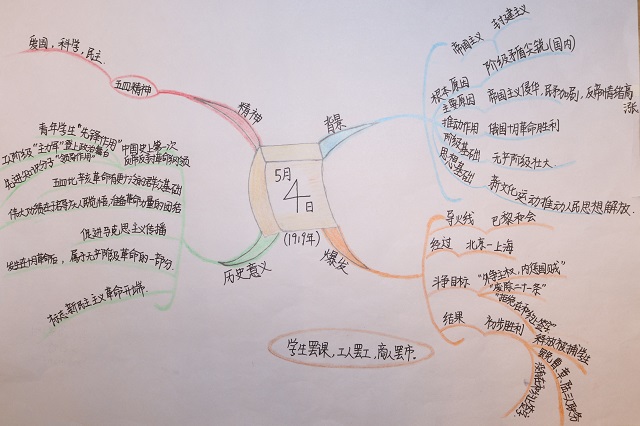 爱国，科学，民主
五四精神
精神
背景
帝国主义
封建主义
根本原因
阶级矛盾尖锐(国内)
主要原因
帝国主义侵华，民矛加剧，反帝情绪高涨
推动作用
俄国十月革命胜利
阶级基础
无产阶级壮大
思想基础
新文化运动推动人民思想解放
5月
4
日
(1919年)
爆发
导火线
巴黎和会
经过
北京—上海
斗争目标
"外争主权，内惩国贼"
"废除二十一条"
"拒绝在和约上签字"
结果
初步胜利
释放被捕学生
学生罢课，工人罢工，商人罢市。
历史意义
青年学生"先锋作用"
工人阶级"主力军"登上政治舞台
先进知识分子"领导作用"
中国史上第一次
五四比辛亥革命有更广泛的群众基础
促进马克思主义传播
发生在十月革命后，属于无产阶级革命的一部分
标志新民主主义革命开端